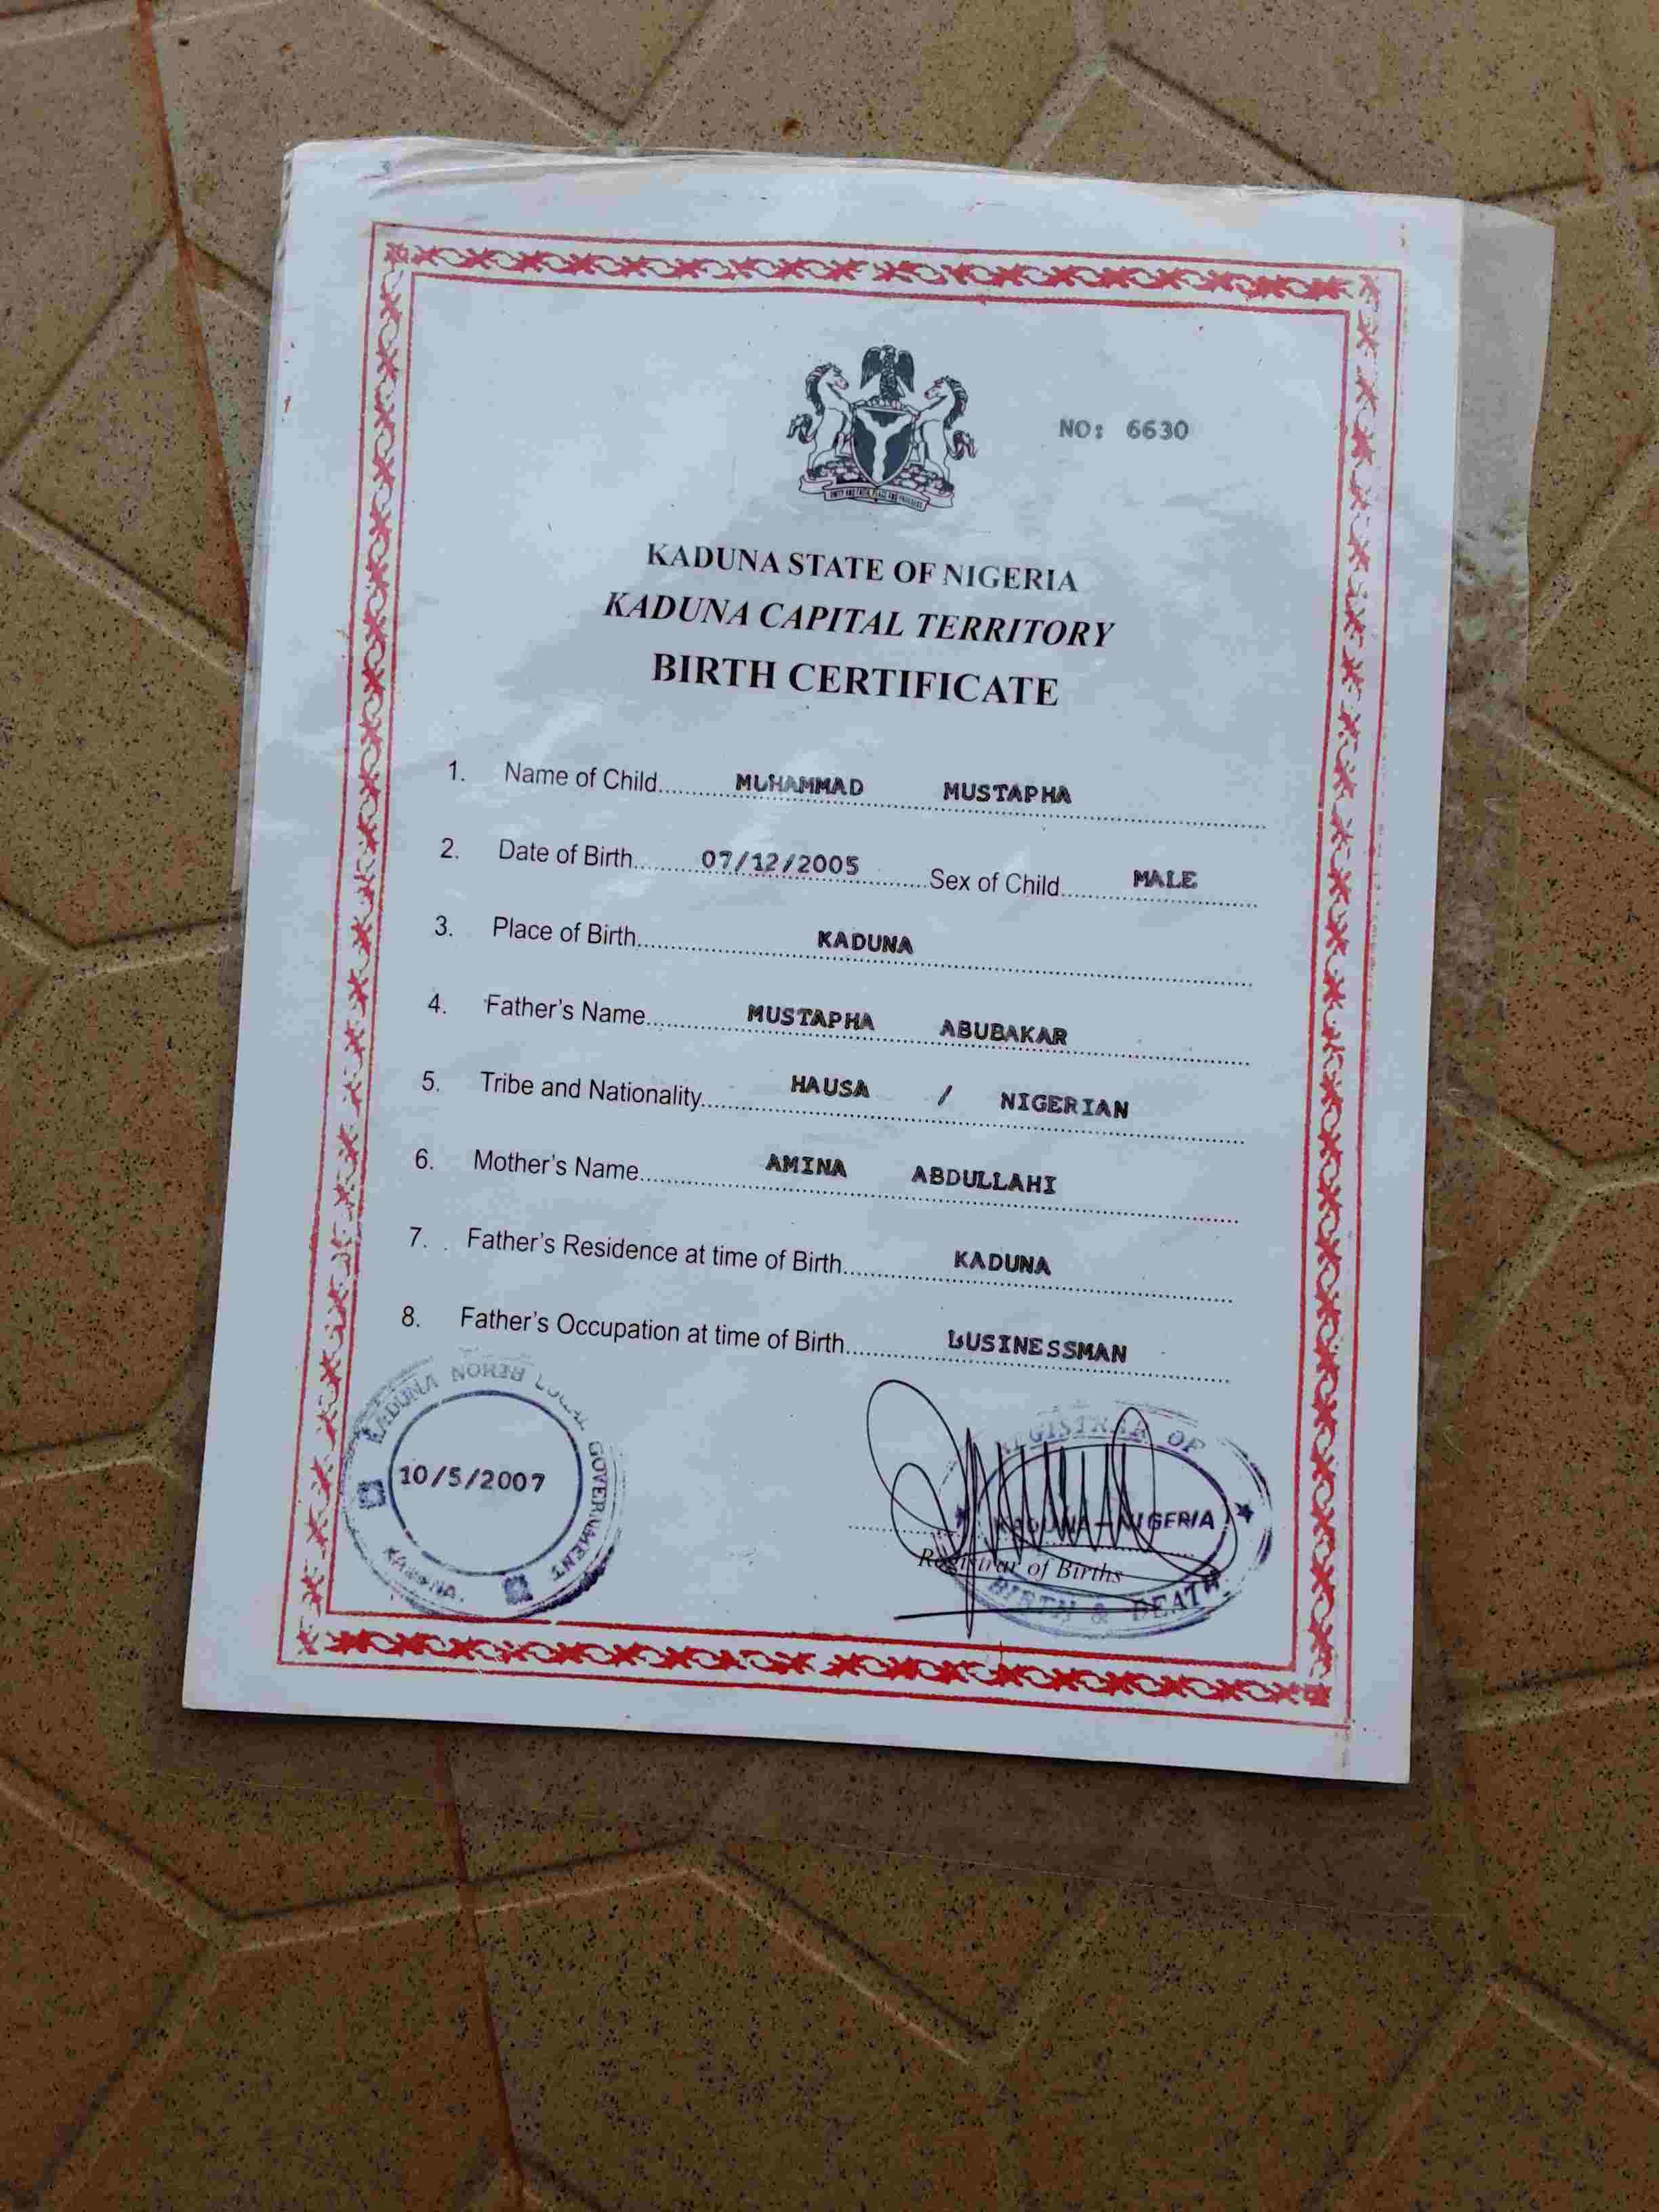 NO: 6630
KADUNA STATE OF NIGERIA
KADUNA CAPITAL TERRITORY
BIRTH CERTIFICATE
1. Name of Child.......... MUHAMMAD MUSTAPHA
2. Date of Birth.......... 07/12/2005 Sex of Child.......... MALE
3. Place of Birth.......... KADUNA
4. Father's Name.......... MUSTAPHA ABUBAKAR
5. Tribe and Nationality.......... HAUSA / NIGERIAN
6. Mother's Name.......... AMINA ABDULLAHI
7. Father's Residence at time of Birth.......... KADUNA
8. Father's Occupation at time of Birth.......... BUSINESSMAN
KADUNA NORTH LOCAL GOVERNMENT
10/5/2007
KADUNA.
REGISTRAR OF
KADUNA - NIGERIA
Registrar of Births
BIRTH & DEATH